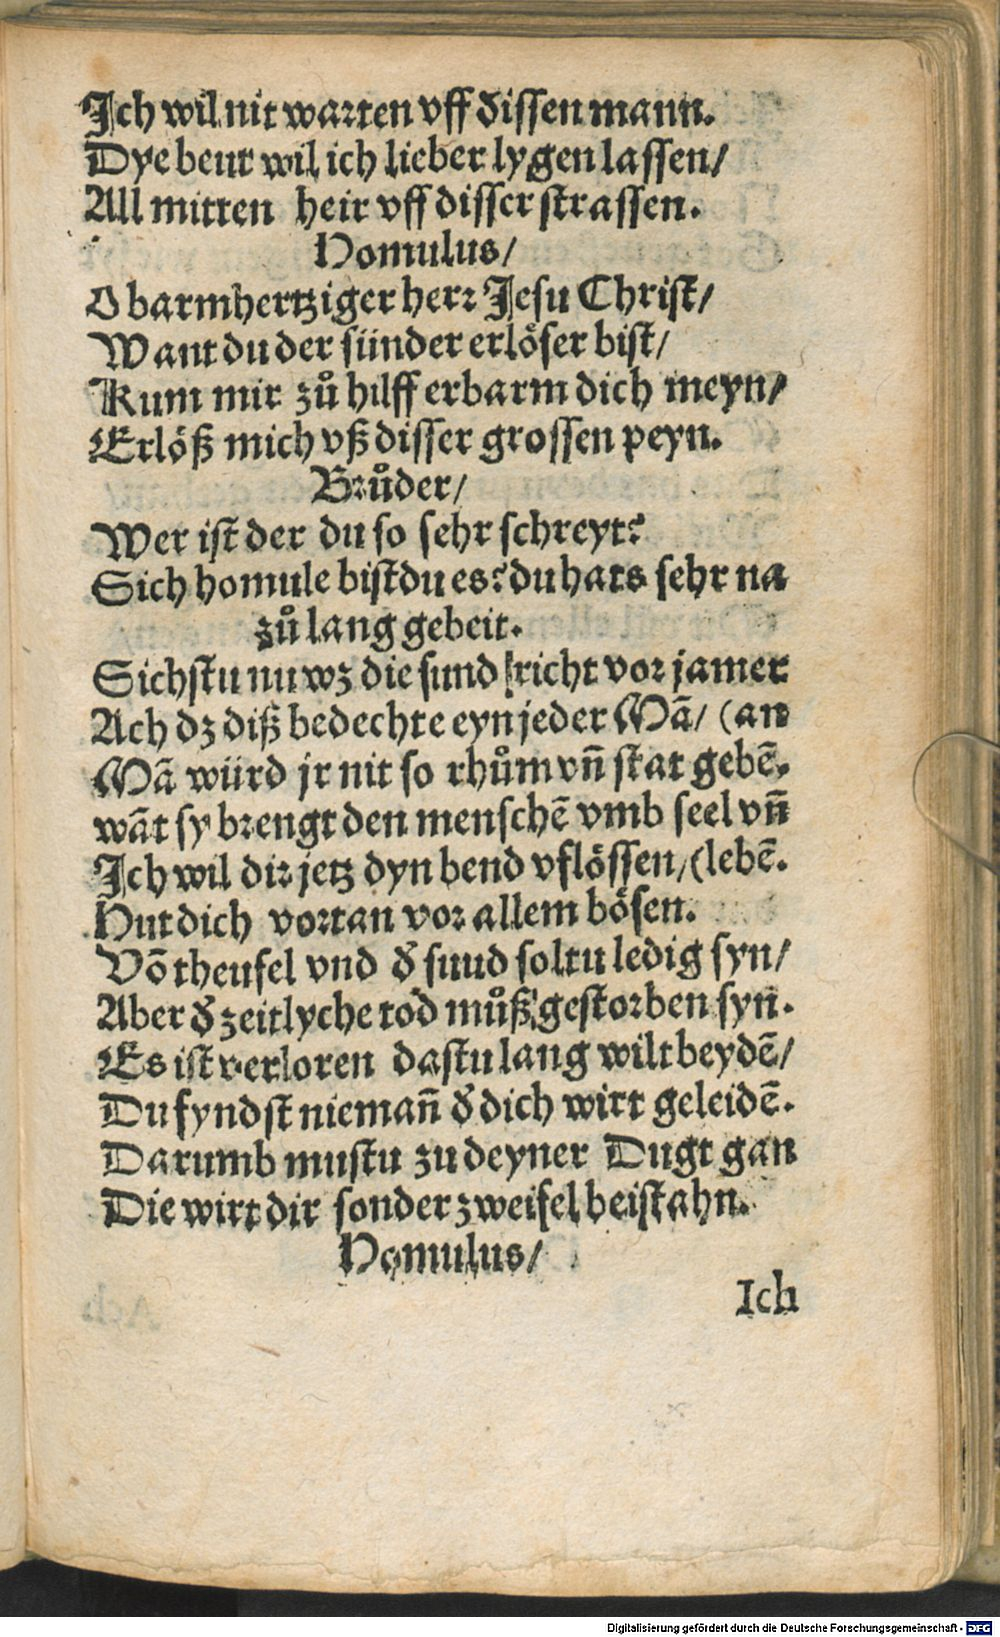 Ich wil nit warten vff dissen mann.
Dye beut wil ich lieber lygen lassen/
All mitten heir vff disser strassen.
Homulus/
O barmhertziger herr Jesu Christ/
Want du der sünder erlöser bist/
Kum mir zů hilff erbarm dich meyn/
Erlöß mich vß disser grossen peyn.
Brůder/
Wer ist der du so sehr schreyt?
Sich homule bistdu es? du hats sehr na
zů lang gebeit.
Sichstu nu wz die sund richt vor jamer
Ach dz diß bedechte eyn jeder Mã/ (an
Mã würd jr nit so rhům vñ stat gebẽ.
wãt sy brengt den menschẽ vmb seel vñ
Ich wil dir jetz dyn bend vflössen/(lebẽ.
Hut dich vortan vor allem bösen.
Võ theufel vnd d̕ suud soltu ledig syn/
Aber d̕ zeitlyche tod můß gestorben syn.
Es ist verloren dastu lang wilt beydẽ/
Du fyndst niemañ d̕ dich wirt geleidẽ.
Darumb mustu zu deyner Dugt gan
Die wirt dir sonder zweifel beistahn.
Homulus/
Ich
Digitalisierung gefördert durch die Deutsche Forschungsgemeinschaft - DFG